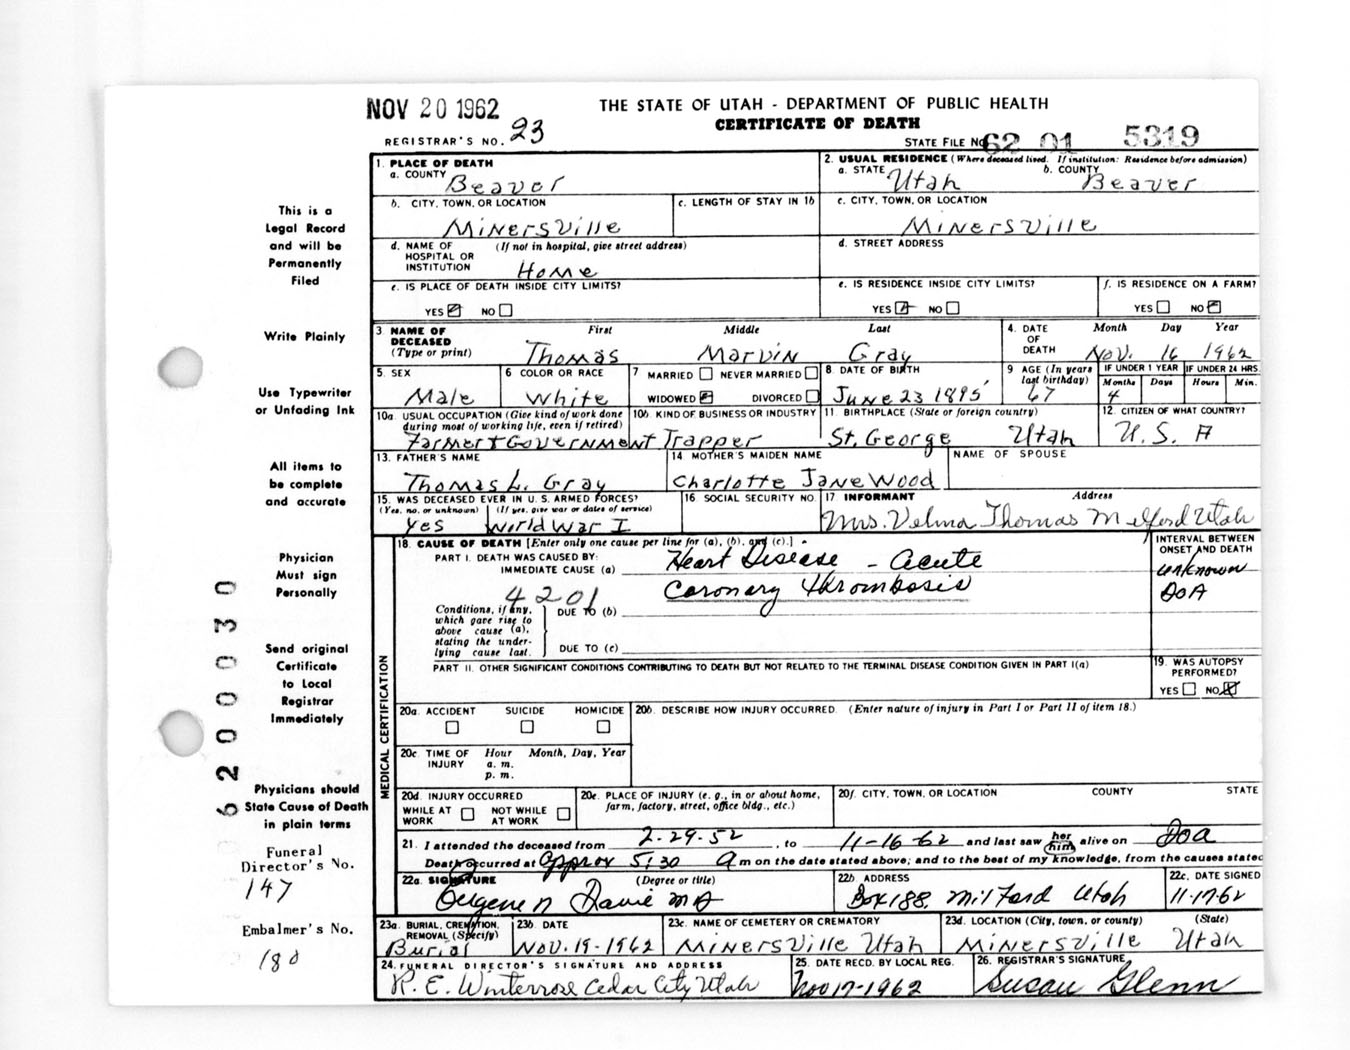 NOV 20 1962
THE STATE OF UTAH - DEPARTMENT OF PUBLIC HEALTH
CERTIFICATE OF DEATH
REGISTRAR'S NO. 23
STATE FILE NO. 62 01 5319
1. PLACE OF DEATH
a. COUNTY Beaver
2. USUAL RESIDENCE (Where deceased lived. If institution: Residence before admission)
a. STATE Utah b. COUNTY Beaver
b. CITY, TOWN, OR LOCATION Minersville
c. LENGTH OF STAY IN 1b
c. CITY, TOWN, OR LOCATION Minersville
d. NAME OF HOSPITAL OR INSTITUTION (If not in hospital, give street address) Home
d. STREET ADDRESS
e. IS PLACE OF DEATH INSIDE CITY LIMITS?
YES NO
e. IS RESIDENCE INSIDE CITY LIMITS?
YES NO
f. IS RESIDENCE ON A FARM?
YES NO
3 NAME OF DECEASED (Type or print)
First Middle Last
Thomas Marvin Gray
4. DATE OF DEATH
Month Day Year
Nov. 16 1962
5. SEX Male
6 COLOR OR RACE White
7 MARRIED NEVER MARRIED
WIDOWED DIVORCED
8. DATE OF BIRTH June 23 1895
9 AGE (In years last birthday) 67
IF UNDER 1 YEAR
Months Days
4
IF UNDER 24 HRS.
Hours Min.
10a. USUAL OCCUPATION (Give kind of work done during most of working life, even if retired)
10b. KIND OF BUSINESS OR INDUSTRY
Farmer + Government Trapper
11. BIRTHPLACE (State or foreign country) St. George Utah
12. CITIZEN OF WHAT COUNTRY? U. S. A
13. FATHER'S NAME Thomas L. Gray
14 MOTHER'S MAIDEN NAME Charlotte Jane Wood
NAME OF SPOUSE
15. WAS DECEASED EVER IN U. S. ARMED FORCES?
(Yes, no, or unknown) (If yes, give war or dates of service)
Yes World War I
16 SOCIAL SECURITY NO.
17 INFORMANT Address
Mrs. Velma Thomas Milford Utah
MEDICAL CERTIFICATION
18. CAUSE OF DEATH [Enter only one cause per line for (a), (b), and (c).]
PART I. DEATH WAS CAUSED BY:
IMMEDIATE CAUSE (a) Heart Disease - acute
Coronary thrombosis
4201
Conditions, if any, which gave rise to above cause (a), stating the underlying cause last.
DUE TO (b)
DUE TO (c)
INTERVAL BETWEEN ONSET AND DEATH
unknown
DOA
PART II. OTHER SIGNIFICANT CONDITIONS CONTRIBUTING TO DEATH BUT NOT RELATED TO THE TERMINAL DISEASE CONDITION GIVEN IN PART I(a)
19. WAS AUTOPSY PERFORMED?
YES NO
20a. ACCIDENT SUICIDE HOMICIDE
20b. DESCRIBE HOW INJURY OCCURRED. (Enter nature of injury in Part I or Part II of item 18.)
20c. TIME OF INJURY
Hour Month, Day, Year
a. m.
p. m.
20d. INJURY OCCURRED
WHILE AT WORK NOT WHILE AT WORK
20e. PLACE OF INJURY (e. g., in or about home, farm, factory, street, office bldg., etc.)
20f. CITY, TOWN, OR LOCATION COUNTY STATE
21. I attended the deceased from 2-29-52, to 11-16-62 and last saw her him alive on DOA
Death occurred at approx 5:30 a m on the date stated above; and to the best of my knowledge, from the causes stated
22a. SIGNATURE (Degree or title)
Eugene N Davie MD
22b. ADDRESS
Box 188 Milford Utah
22c. DATE SIGNED
11-17-62
23a. BURIAL, CREMATION, REMOVAL (Specify) Burial
23b. DATE Nov. 19-1962
23c. NAME OF CEMETERY OR CREMATORY Minersville Utah
23d. LOCATION (City, town, or county) (State)
Minersville Utah
24. FUNERAL DIRECTOR'S SIGNATURE AND ADDRESS
R. E. Winterrose Cedar City Utah
25. DATE RECD. BY LOCAL REG.
Nov 17-1962
26. REGISTRAR'S SIGNATURE
Susan Glenn
This is a
Legal Record
and will be
Permanently
Filed
Write Plainly
Use Typewriter
or Unfading Ink
All items to
be complete
and accurate
Physician
Must sign
Personally
Send original
Certificate
to Local
Registrar
Immediately
Physicians should
State Cause of Death
in plain terms
Funeral
Director's No.
147
Embalmer's No.
180
6200030